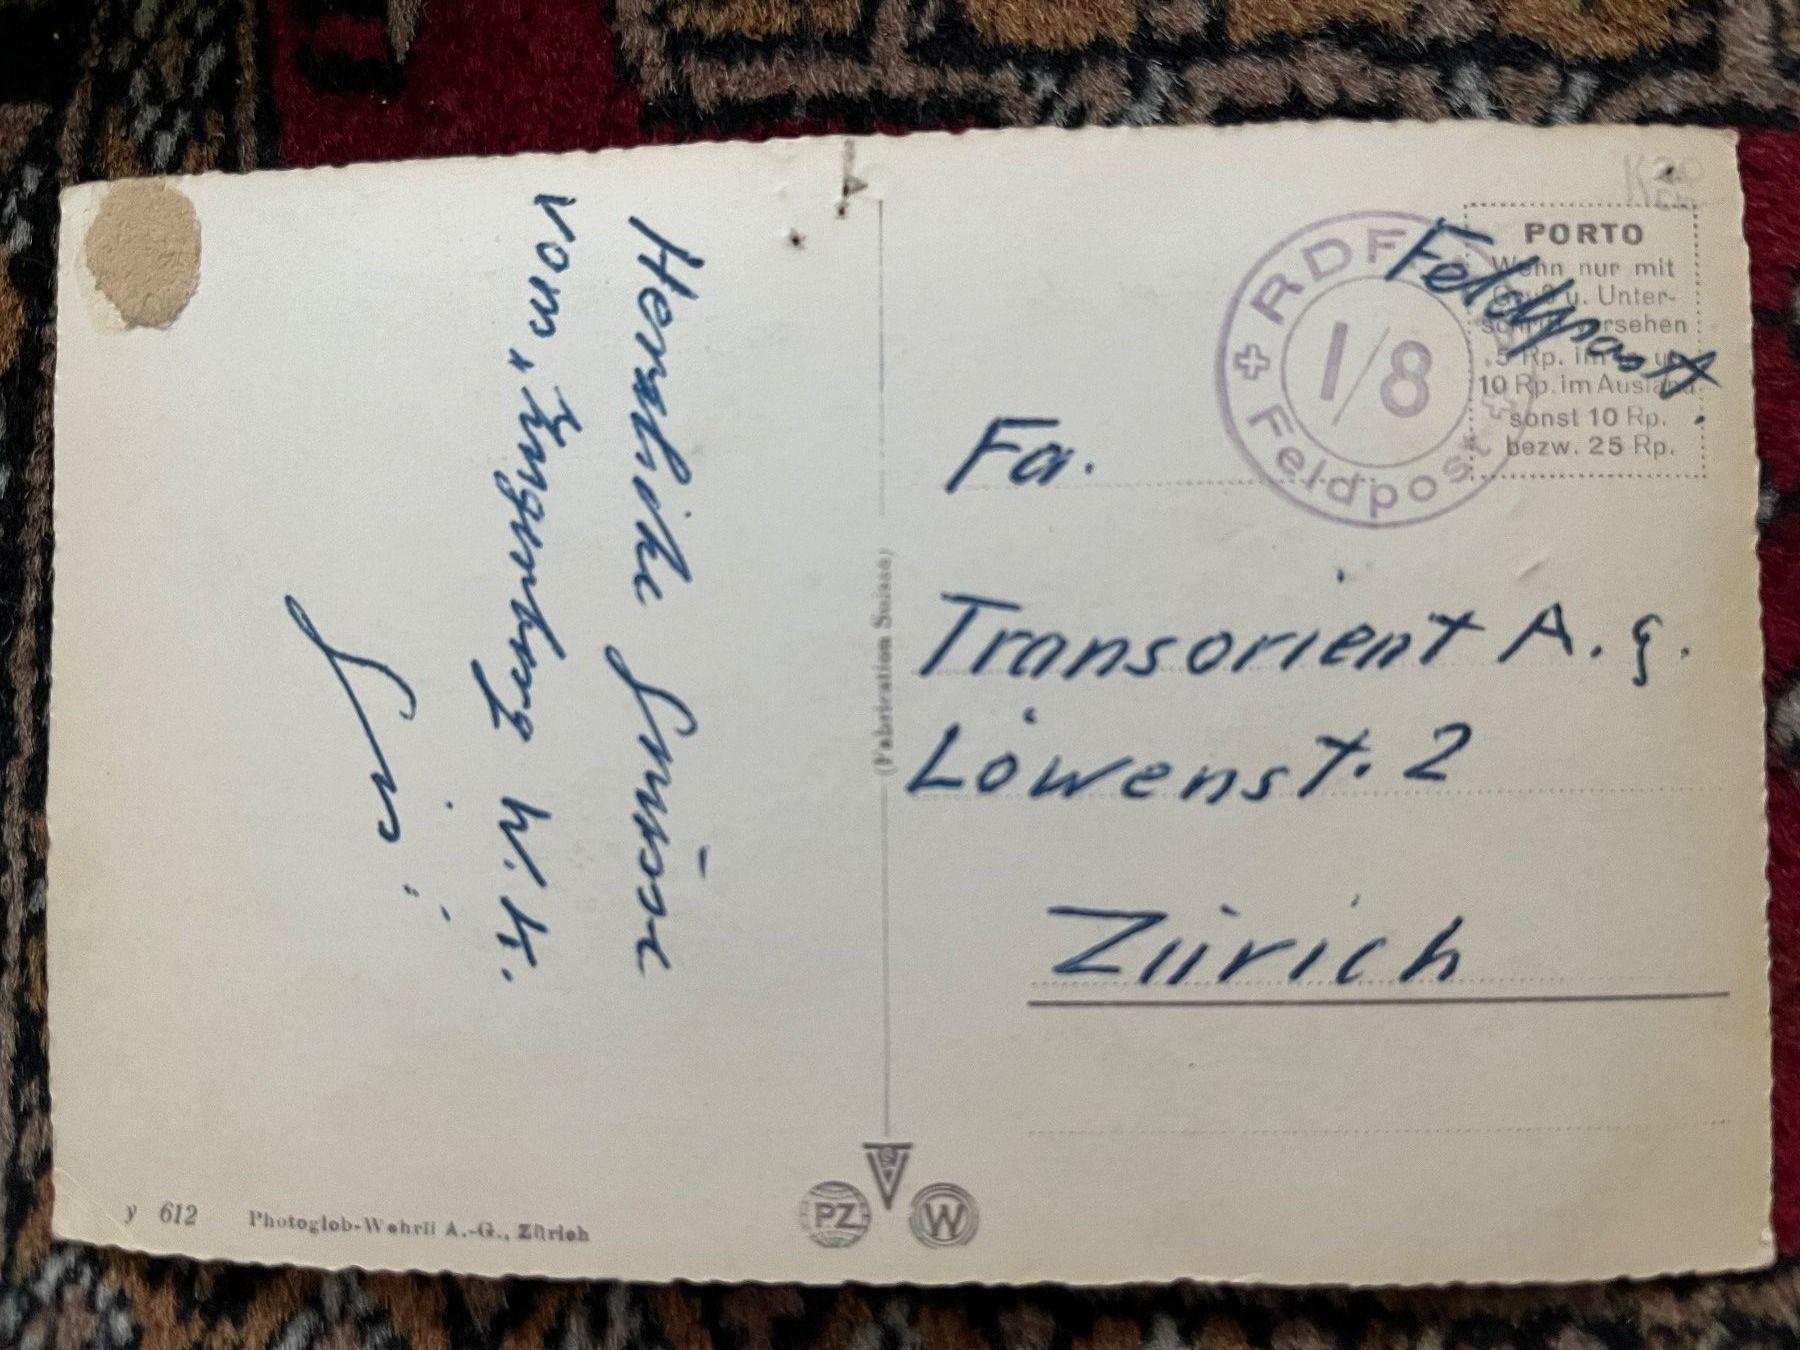 Herzliche Grüsse
von
W. K.
y 612
Photoglob-Wehrli A.-G., Zürich
(Fabrication Suisse)
PZ
W
K 20
Feldpost.
RDF
1/8
Feldpost
PORTO
Wenn nur mit
Gruß u. Unter-
schrift versehen
5 Rp. im
10 Rp. im Ausland
sonst 10 Rp.
bezw. 25 Rp.
Fa.
Transorient A. G.
Löwenst. 2
Zürich